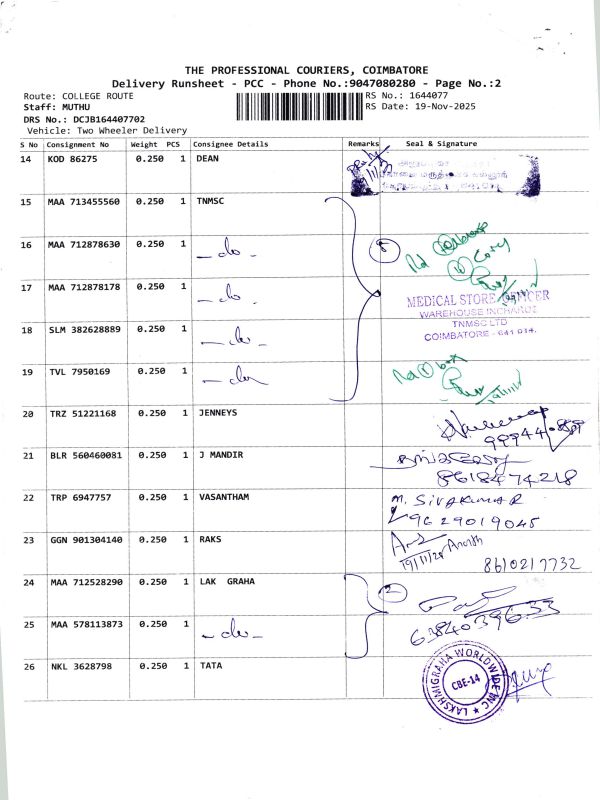 THE PROFESSIONAL COURIERS, COIMBATORE
Delivery Runsheet - PCC - Phone No.:9047080280 - Page No.:2
Route: COLLEGE ROUTE RS No.: 1644077
Staff: MUTHU RS Date: 19-Nov-2025
DRS No.: DCJB164407702
Vehicle: Two Wheeler Delivery
S No Consignment No Weight PCS Consignee Details Remarks Seal & Signature
14 KOD 86275 0.250 1 DEAN
15 MAA 713455560 0.250 1 TNMSC
16 MAA 712878630 0.250 1 -do- 5
17 MAA 712878178 0.250 1 -do-
MEDICAL STORE OFFICER
WAREHOUSE INCHARGE
TNMSC LTD
COIMBATORE - 641 014.
18 SLM 382628889 0.250 1 -do-
19 TVL 7950169 0.250 1 -do-
20 TRZ 51221168 0.250 1 JENNEYS
21 BLR 560460081 0.250 1 J MANDIR
8618474218
22 TRP 6947757 0.250 1 VASANTHAM M. SIVAKUMAR
9629019045
23 GGN 901304140 0.250 1 RAKS
19/11/25 8610217732
24 MAA 712528290 0.250 1 LAK GRAHA 2
6384039633
25 MAA 578113873 0.250 1 -do-
26 NKL 3628798 0.250 1 TATA
LAKSHMIGRAHA WORLDWIDE INC
CBE-14